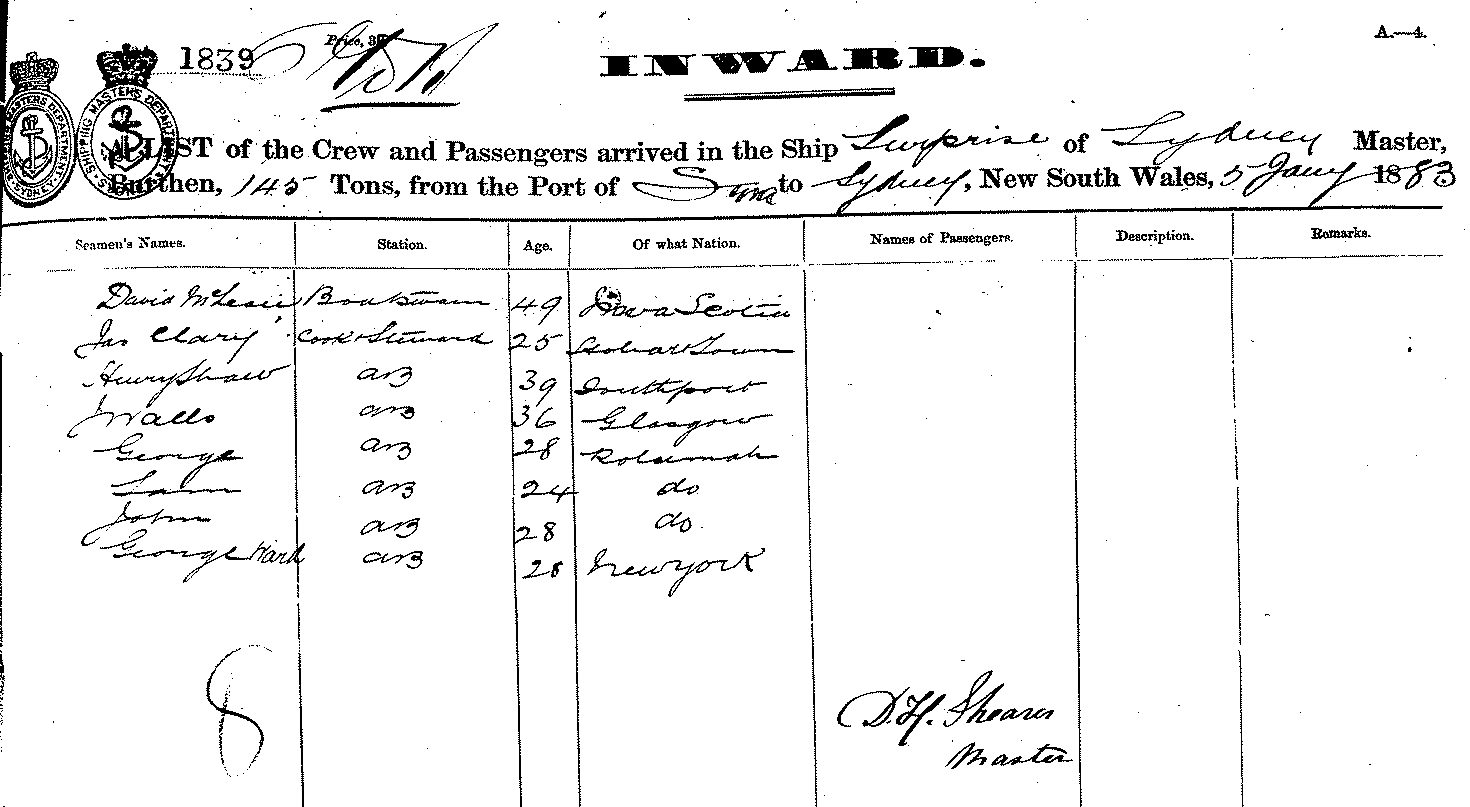 A.—4.
1839
Price, 3
INWARD.
A LIST of the Crew and Passengers arrived in the Ship Surprise of Sydney Master,
Burthen, 145 Tons, from the Port of to Sydney, New South Wales, 5 Jany 1883
Seamen's Names. Station. Age. Of what Nation. Names of Passengers. Description. Remarks.
David Boatswain 49 Nova Scotia
Jas Clary Cook & Steward 25 Hobart Town
Henry Shaw AB 39 Southport
J Walls AB 36 Glasgow
George AB 28 Rotumah
Sam AB 24 do
John AB 28 do
George Ward AB 28 New York
8
D. H. Shearer
Master